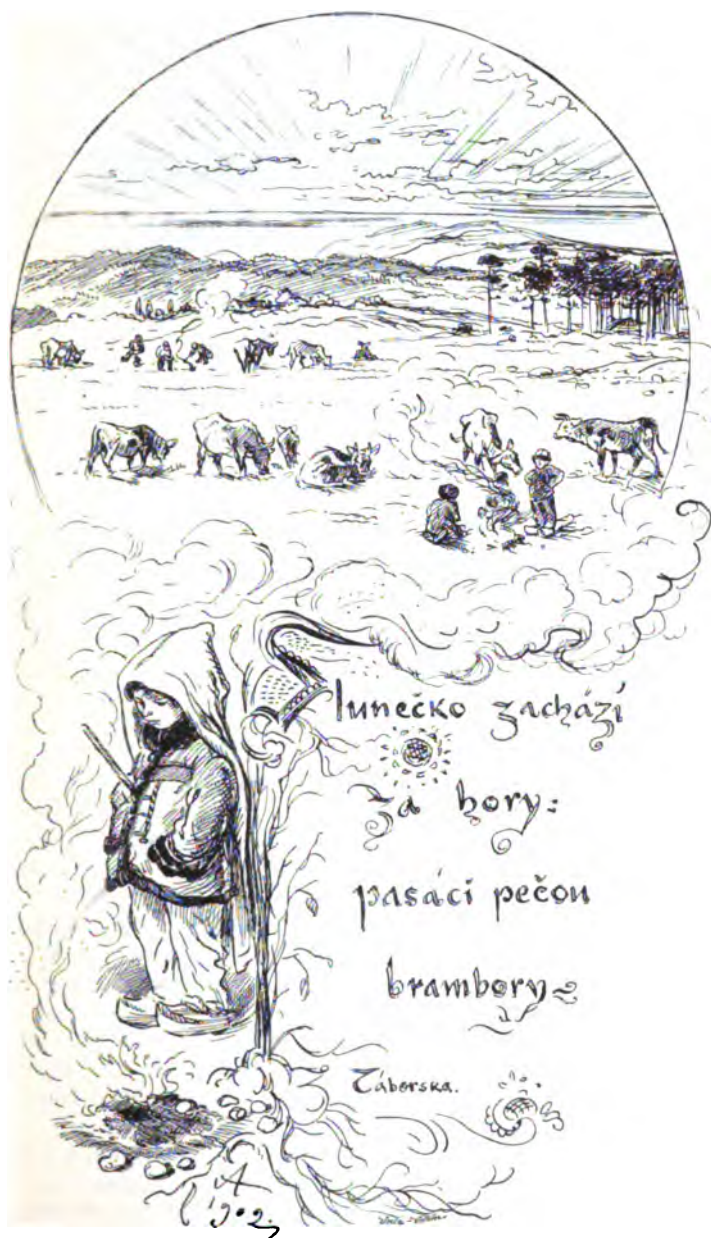 Slunečko zachází
za hory:
pasáci pečou
brambory
Táborska.
1902.